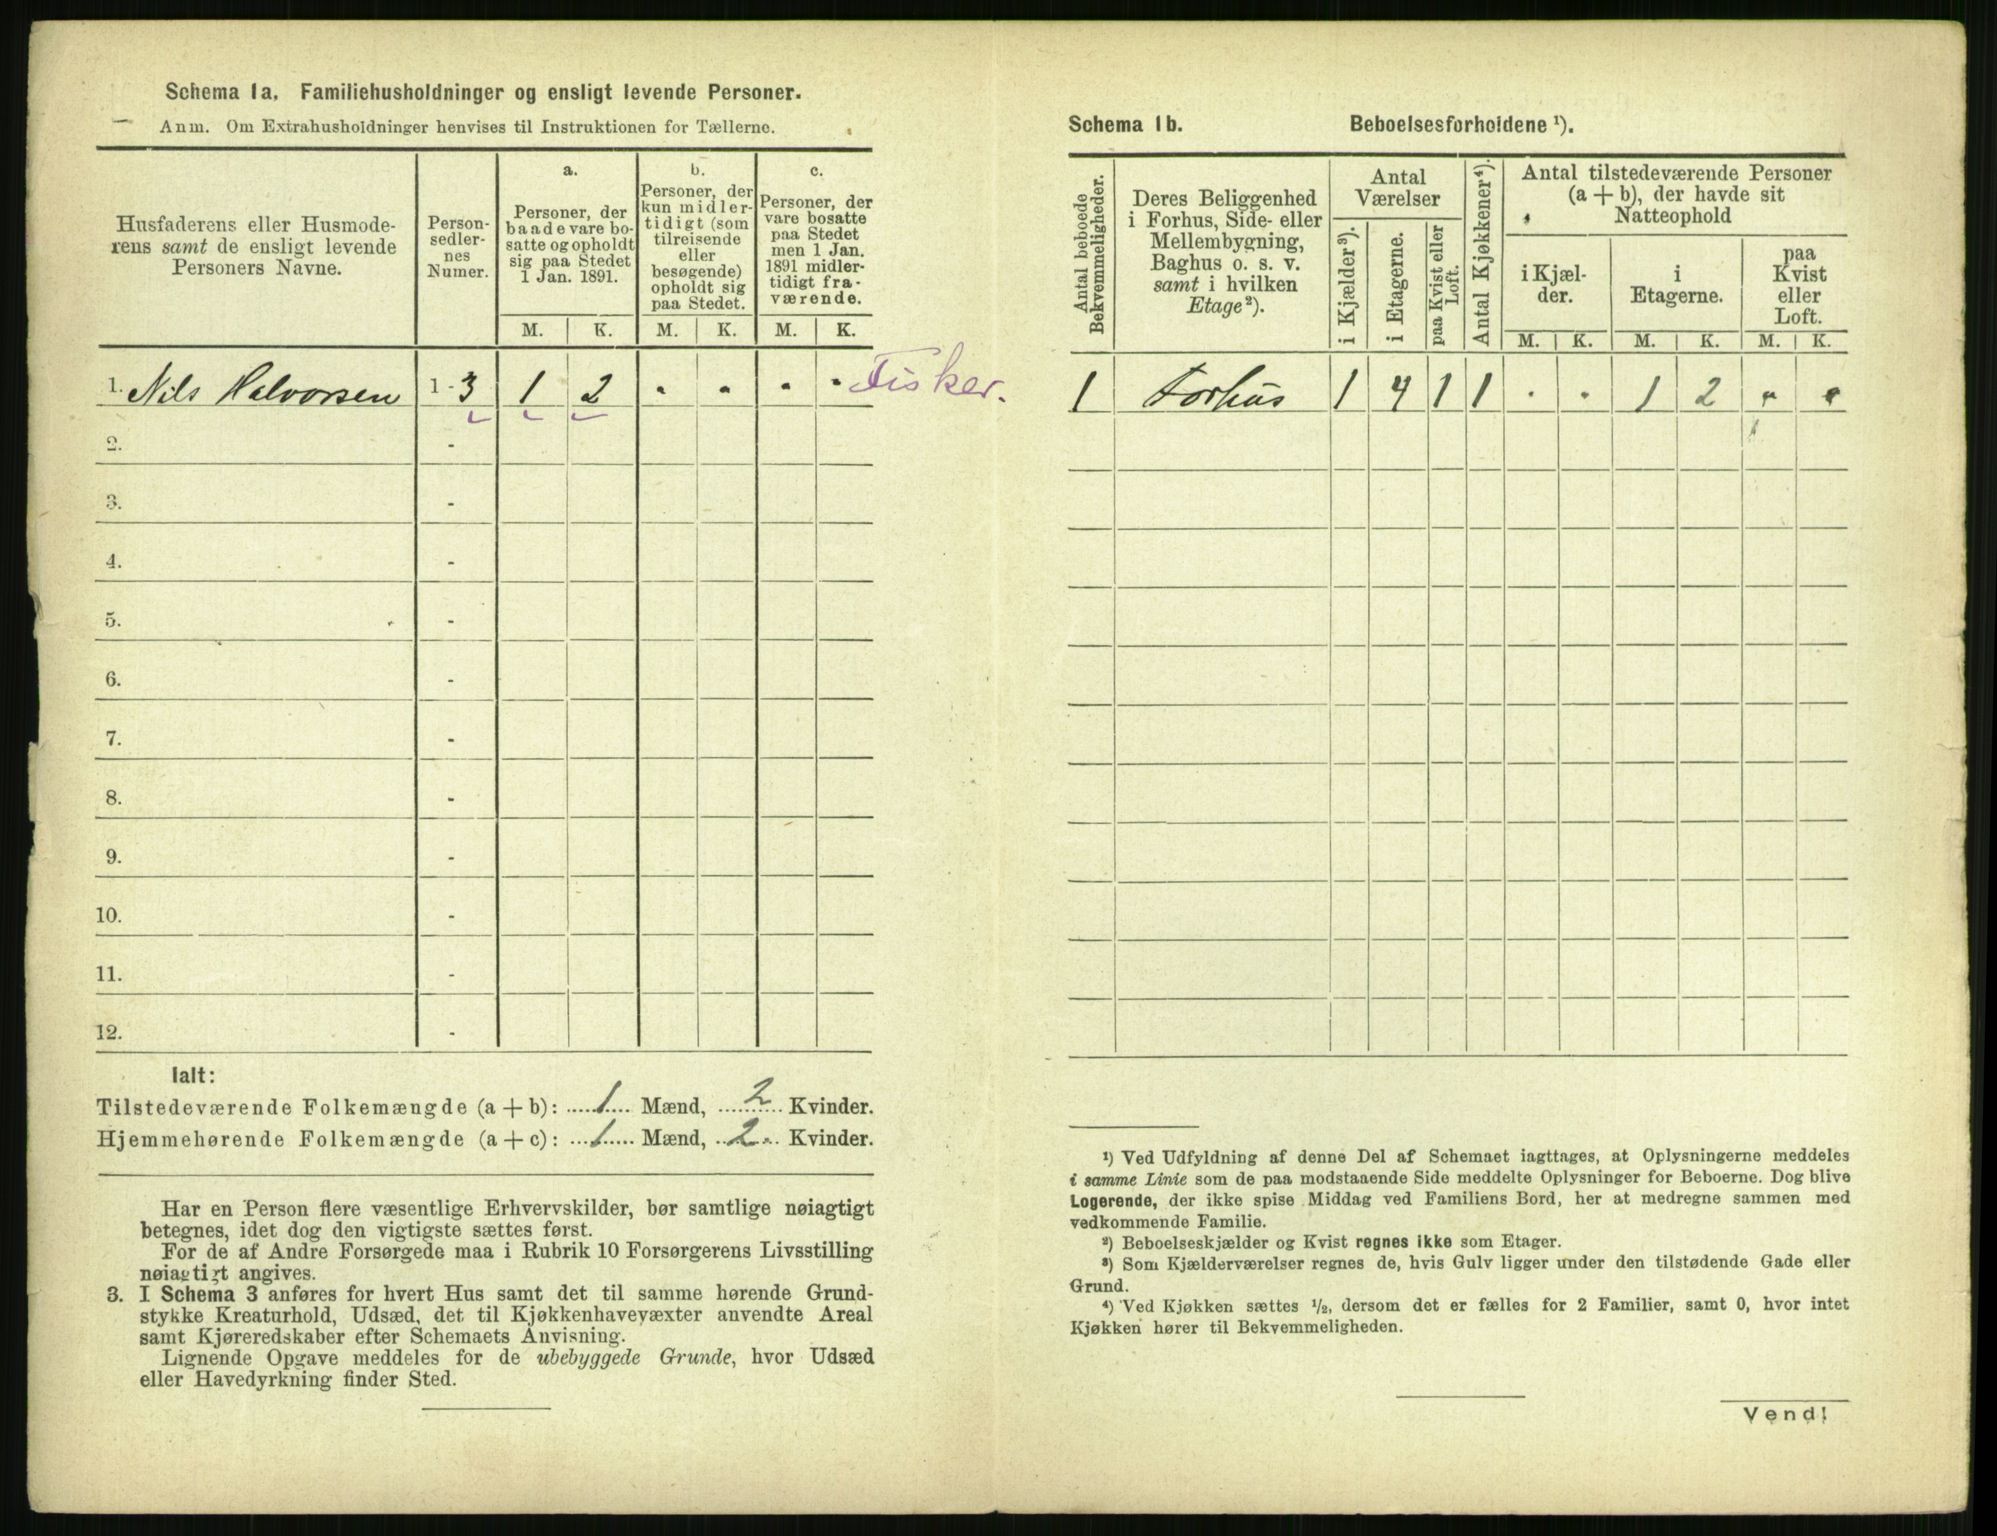 Schema 1a. Familiehusholdninger og ensligt levende Personer.
Anm. Om Extrahusholdninger henvises til Instruktionen for Tællerne.
Husfaderens eller Husmode-
rens samt de ensligt levende
Personers Navne.
Person-
sedler-
nes
Numer.
a.
Personer, der
baade vare bo-
satte og opholdt
sig paa Stedet
1 Jan. 1891.
b.
Personer, der
kun midler-
tidigt (som
tilreisende
eller
besøgende)
opholdt sig
paa Stedet.
c.
Personer, der
vare bosatte
paa Stedet
men 1 Jan.
1891 midler-
tidigt fra-
værende.
M. K. M. K. M. K.
1. Nils Halvorsen 1 - 3 1 2 . . . . Fisker.
2. -
3. -
4. -
5. -
6. -
7. -
8. -
9. -
10. -
11. -
12. -
Ialt:
Tilstedeværende Folkemængde (a + b): ..... 1 .... Mænd, .... 2 .... Kvinder.
Hjemmehørende Folkemængde (a + c): ... 1 ..... Mænd, .. 2 .. Kvinder.
Har en Person flere væsentlige Erhvervskilder, bør samtlige nøiagtigt
betegnes, idet dog den vigtigste sættes først.
For de af Andre Forsørgede maa i Rubrik 10 Forsørgerens Livsstilling
nøiagtigt angives.
3. I Schema 3 anføres for hvert Hus samt det til samme hørende Grund-
stykke Kreaturhold, Udsæd, det til Kjøkkenhavevæxter anvendte Areal
samt Kjøreredskaber efter Schemaets Anvisning.
Lignende Opgave meddeles for de ubebyggede Grunde, hvor Udsæd
eller Havedyrkning finder Sted.
Schema 1b. Beboelsesforholdene ¹).
Antal beboede
Bekvemmeligheder.
Deres Beliggenhed
i Forhus, Side- eller
Mellembygning,
Baghus o. s. v.
samt i hvilken
Etage²).
Antal
Værelser
i Kjælder³).
i Etagerne.
paa Kvist eller
Loft.
Antal Kjøkkener⁴).
Antal tilstedeværende Personer
(a + b), der havde sit
Natteophold
i Kjæl-
der.
i
Etagerne.
paa
Kvist
eller
Loft.
M. K. M. K. M. K.
1 Forhus 1 4 1 1 . . 1 2 . .
¹) Ved Udfyldning af denne Del af Schemaet iagttages, at Oplysningerne meddeles
i samme Linie som de paa modstaaende Side meddelte Oplysninger for Beboerne. Dog blive
Logerende, der ikke spise Middag ved Familiens Bord, her at medregne sammen med
vedkommende Familie.
²) Beboelseskjælder og Kvist regnes ikke som Etager.
³) Som Kjælderværelser regnes de, hvis Gulv ligger under den tilstødende Gade eller
Grund.
⁴) Ved Kjøkken sættes ½, dersom det er fælles for 2 Familier, samt 0, hvor intet
Kjøkken hører til Bekvemmeligheden.
Vend!